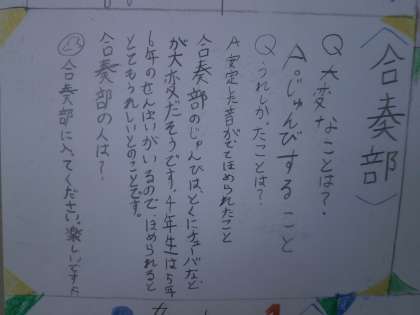 〈合奏部〉
Q大変なことは?
A。じゅんびすること
Qうれしかったことは?
A安定した音がでてほめられたこと
合奏部のじゅんびは、とくにチューバなど
が大変だそうです。4年生は5年
6年のせんぱいがいるので、ほめられると
とてもうれしいとのことです。
合奏部の人は?
合奏部に入ってください。楽しいですよ